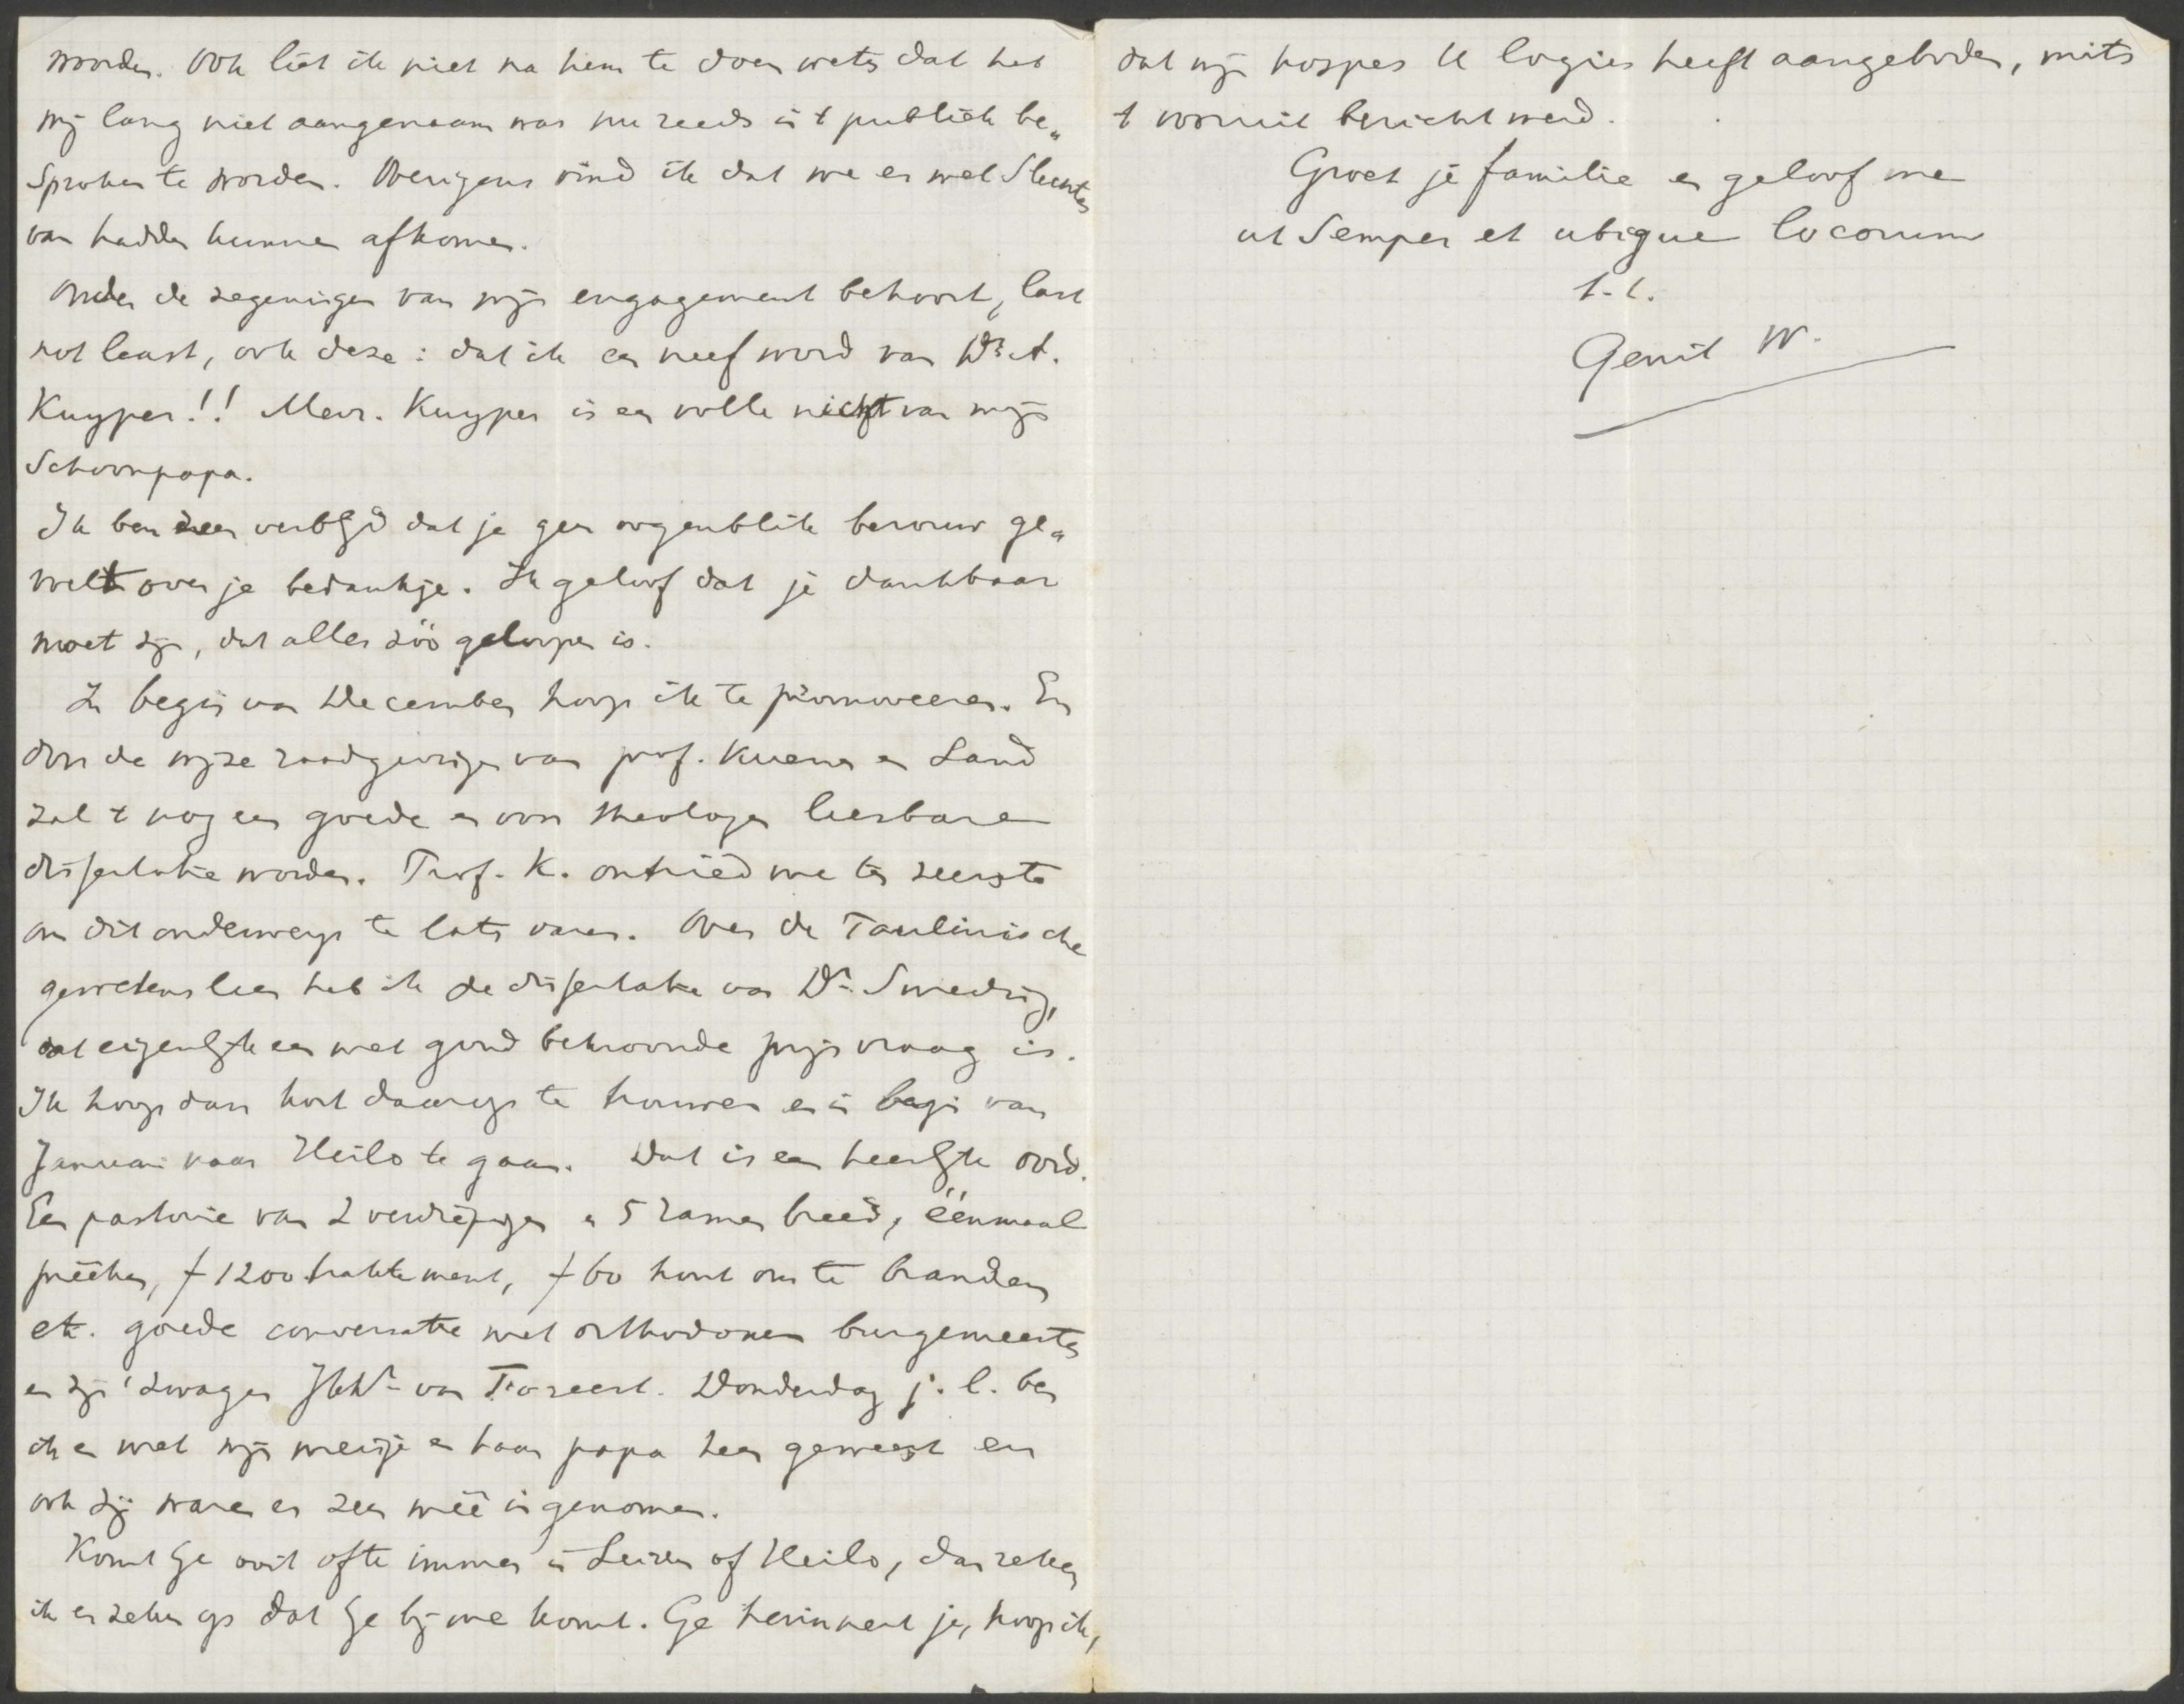 worden. Ook liet ik niet na hem te doen weten dat het
mij lang niet aangenaam was nu reeds in 't publiek be„
sproken te worden. Overigens vind ik dat we er wel slechter
van hadden kunnen afkomen.
Onder de zegeningen van mijn engagement behoort, last
not least, ook deze: dat ik een neef word van Dr. A.
Kuyper!! Mevr. Kuyper is een volle nicht van mijn
Schoonpapa.
Ik ben zeer verblijd dat je geen oogenblik berouw ge„
voelt over je bedankje. Ik geloof dat je dankbaar
moet zijn, dat alles zóó geloopen is.
In begin van December hoop ik te promoveeren. En
door de wijze raadgevingen van prof. Kuenen en Land
zal 't nog een goede en voor theologen leesbare
dissertatie worden. Prof. K. ontried me ten zeerste
om dit onderwerp te laten varen. Over de Paulinische
gewetensleer heb ik de dissertatie van Dr. Smeding,
dat eigenlijk een met goud bekroonde prijsvraag is.
Ik hoop dan kort daarop te trouwen en in begin van
Januari naar Heilo te gaan. Dat is een heerlijk oord.
Een pastorie van 2 verdiepingen en 5 ramen breed, éénmaal
preêken, f 1200 traktement, f 60 hout om te branden
etc. goede conversatie met orthodoxen burgemeester
en zijn zwager JhDr. van Foreest. Donderdag j.l. ben
ik er met mijn meisje en haar papa heen geweest en
ook zij waren er zeer meê ingenomen.
Komt Ge ooit ofte immer in Leiden of Heilo, dan reken
ik er zeker op dat Ge bij me komt. Ge herinnert je, hoop ik,
dat mijn hospes U logies heeft aangeboden, mits
't vooruit bericht werd.
Groet je familie en geloof me
ut semper et ubique locorum
t.t.
Gerrit W.